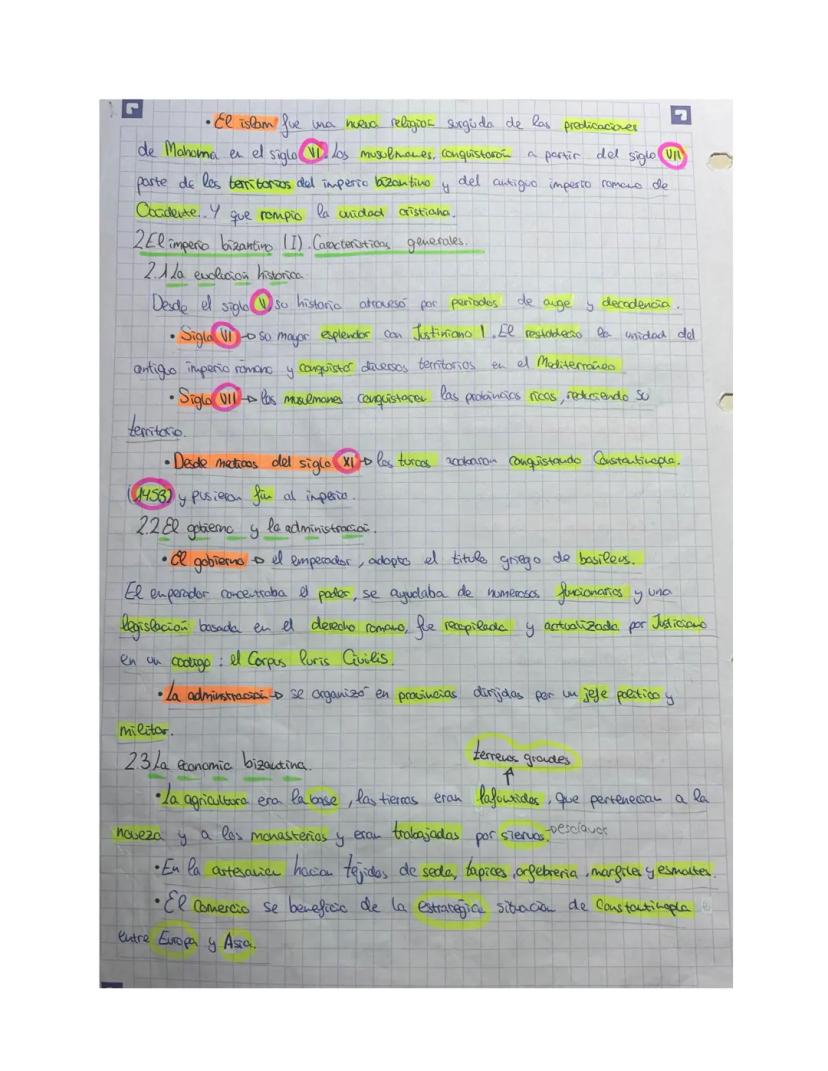 • El islam fue una nueva religion surgida de las predicaciones
de Mahoma en el siglo VI. Los musulmanes, conquistaron a partir del siglo VII
parte de los territorios del imperio bizantino y del antiguo imperio romano de
Occidente. Y que rompio la unidad cristiana.
2 El imperio bizantino (I). Caracteristicas generales.
2.1 La evolucion historica
Desde el siglo V su historia atravesó por periodos de auge y decadencia.
• Siglo VI → su mayor esplendor con Justiniano I. El restablecio la unidad del
antiguo imperio romano y conquistó diversos territorios en el Mediterraneo
• Siglo VII → los musulmanes conquistaron las probincias ricas, reduciendo su
territorio.
• Desde mediaos del siglo XI → los turcos acabaron conquistando Constantinopla.
(1453) y pusieron fin al imperio.
2.2 El gobierno y la administración.
• El gobierno → el emperador, adopto el titulo griego de basileus.
El emperador concentraba el poder, se ayudaba de numerosos funcionarios y una
legislación basada en el derecho romano, fue recopilada y actualizada por Justiciano
en un codigo: el Corpus Iuris Civilis.
• La adminstracion → se organizó en provincias dirijdas por un jefe politico y
militar.
2.3 La economia bizantina.
terrenos grandes
↑
• La agricultura era la base, las tierras eran lafoundidos, que pertenecian a la
nobeza y a los monasterios y eran trabajadas por siervos → esclavos
• En la artesania hacian tejidos de seda, tapices, orfebreria, marfiles y esmaltes.
• El comercio se beneficio de la estrategica situacion de Constantinopla
entre Europa y Asia.